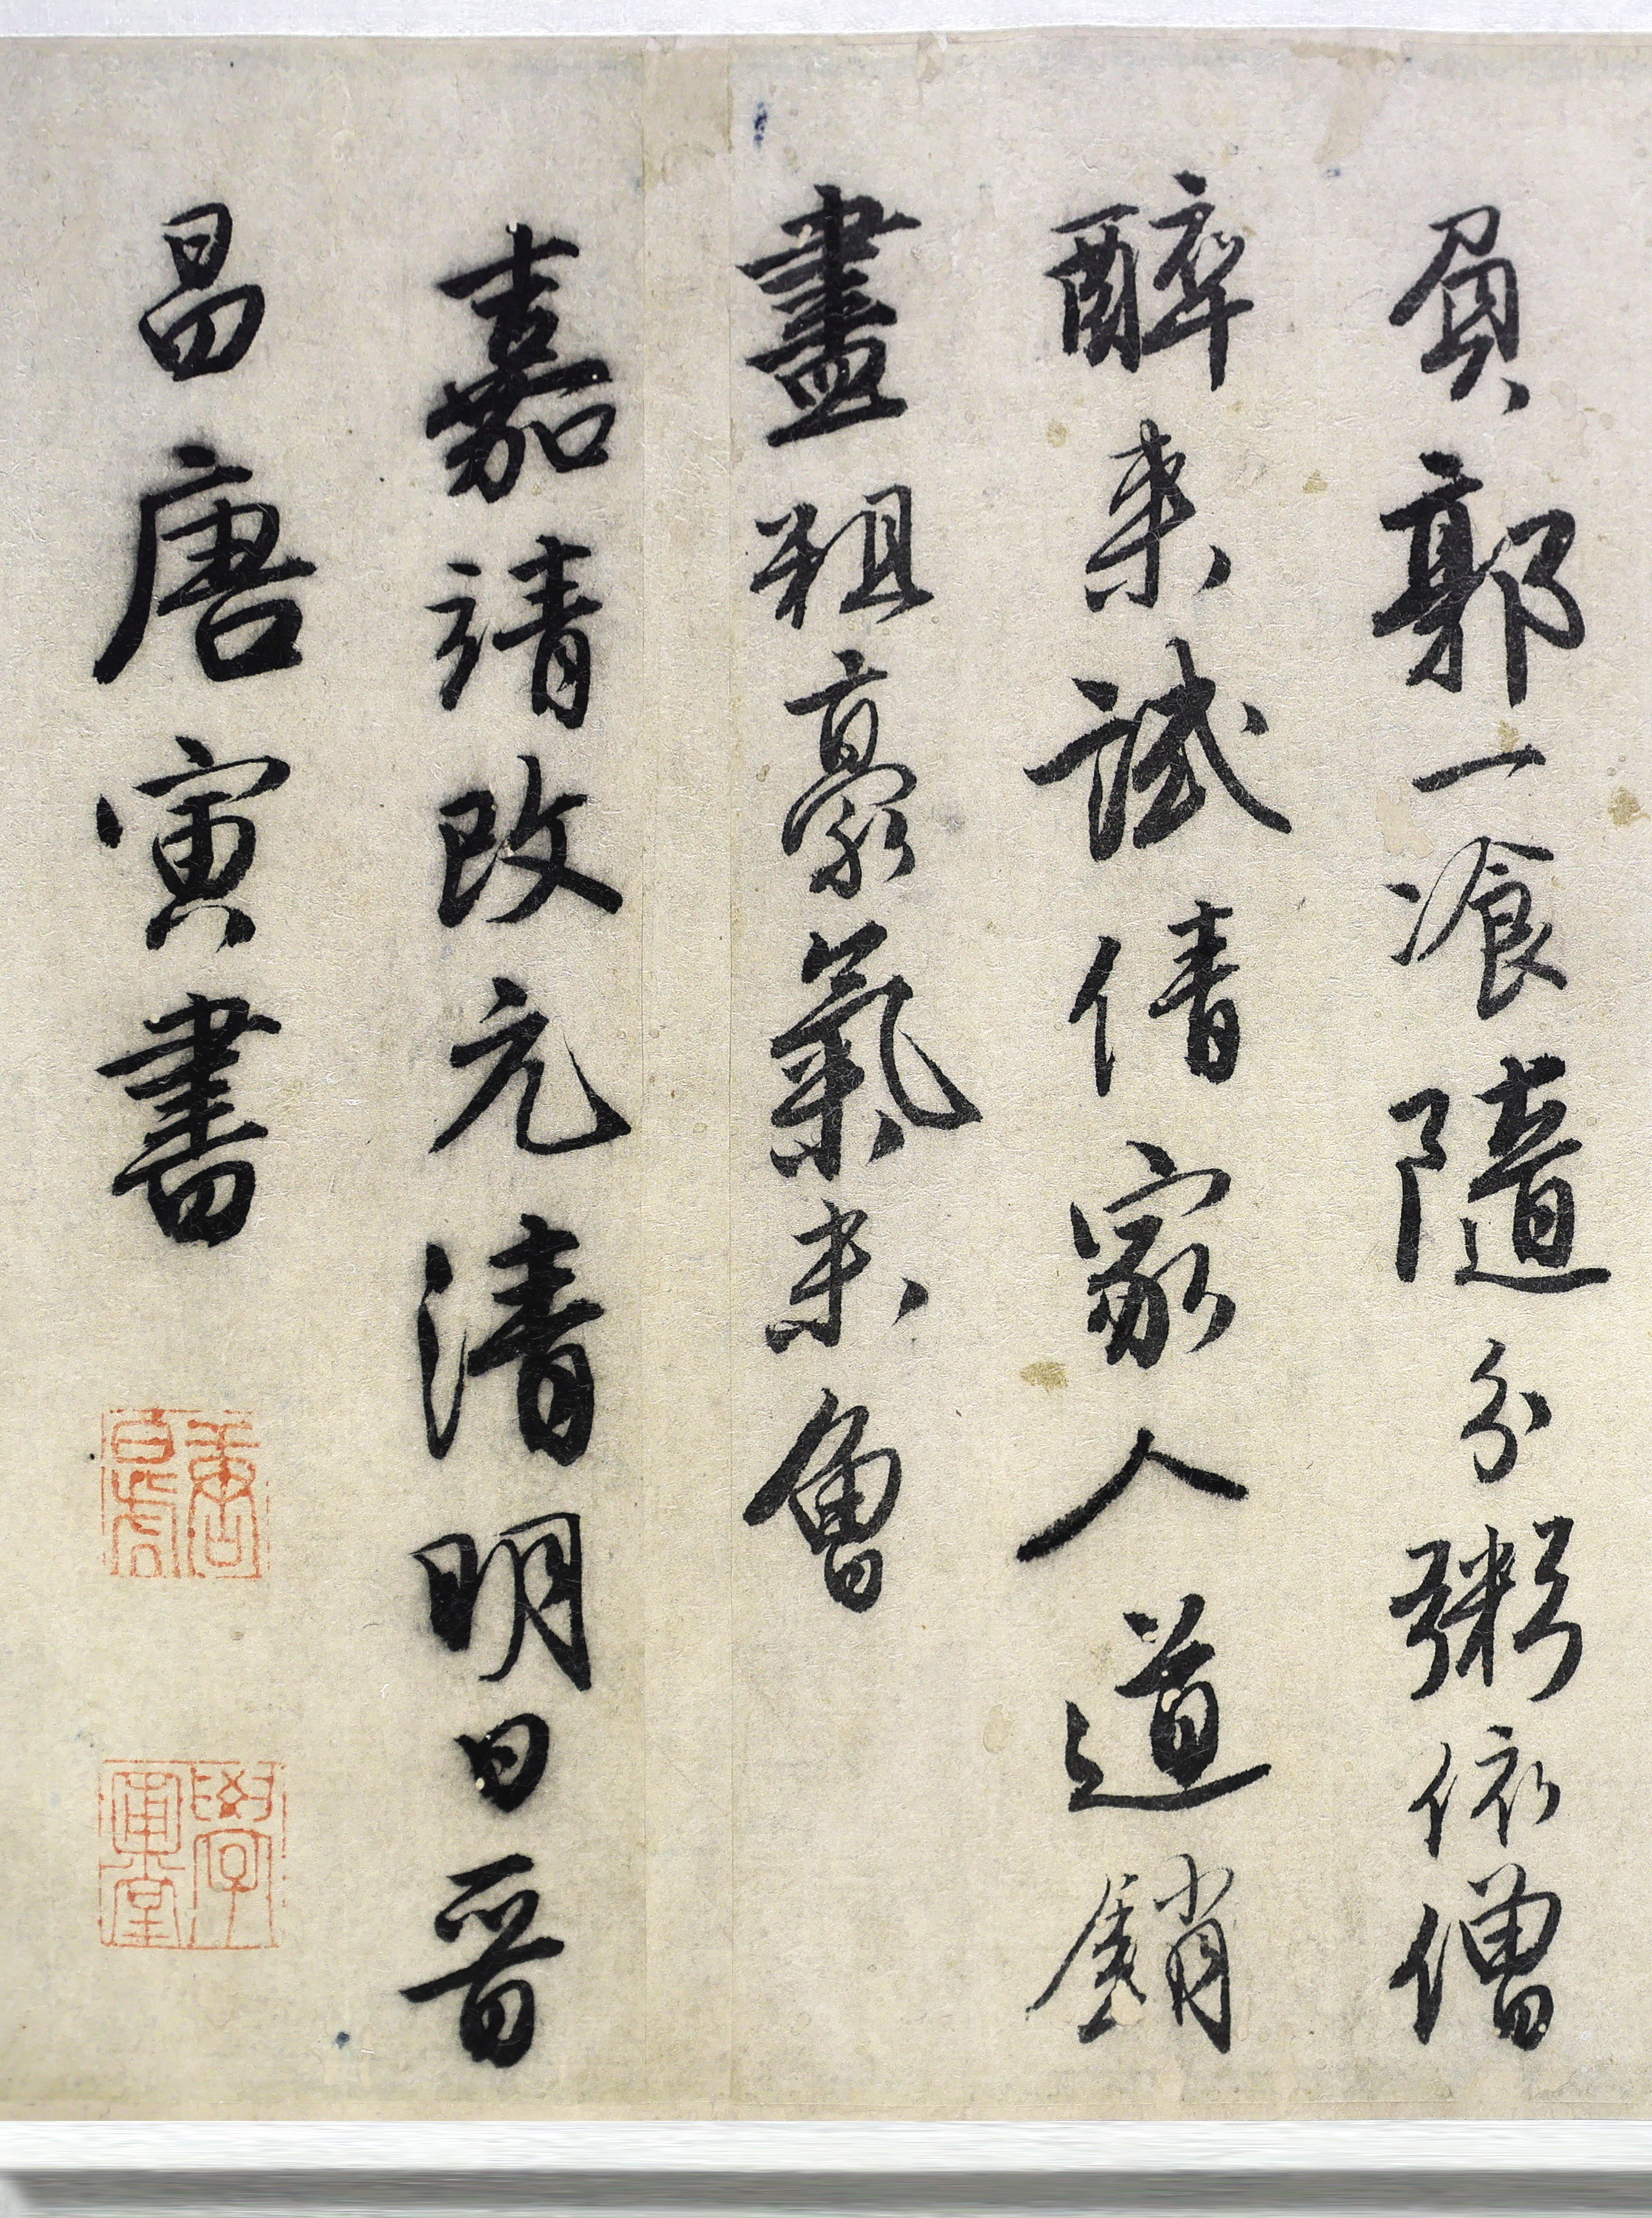 負郭一飡隨分粥依僧
醉來試倩家人道銷
盡粗豪氣未曾
嘉靖改元清明日晉
昌唐寅書
唐白虎
學圃堂